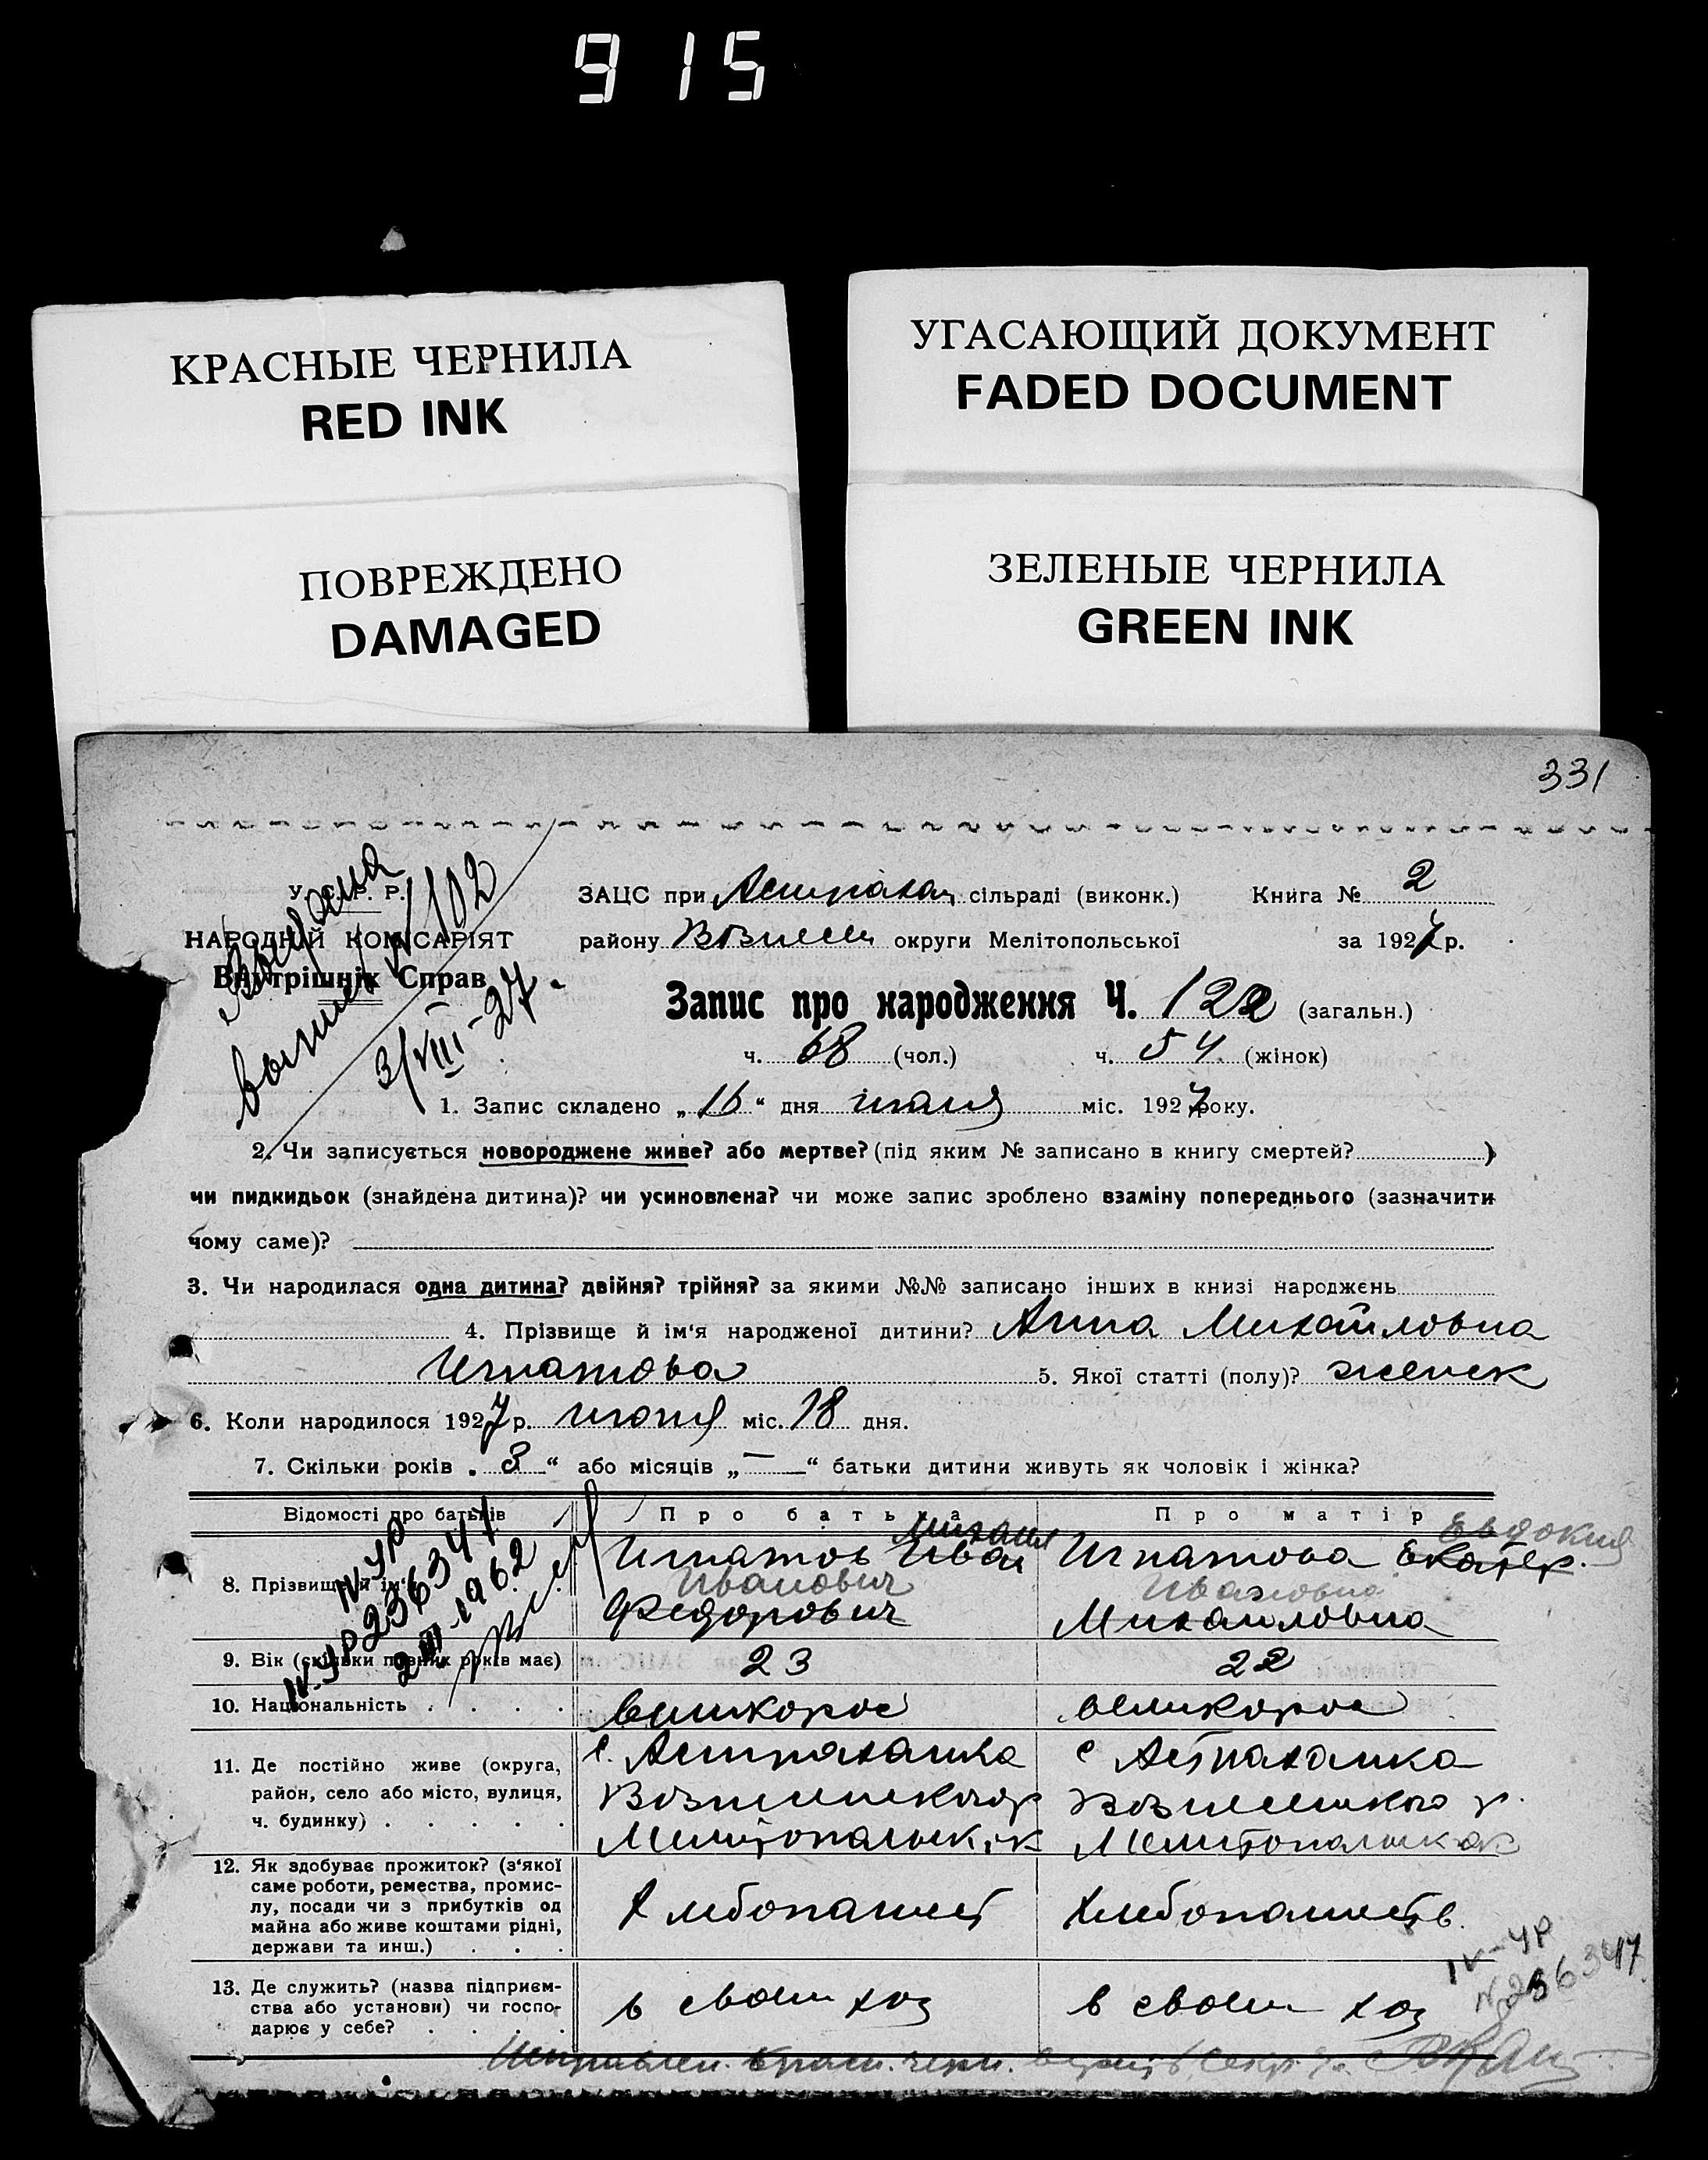 915
КРАСНЫЕ ЧЕРНИЛА
RED INK
УГАСАЮЩИЙ ДОКУМЕНТ
FADED DOCUMENT
ПОВРЕЖДЕНО
DAMAGED
ЗЕЛЕНЫЕ ЧЕРНИЛА
GREEN INK
331
У. С. Р. Р.
НАРОДНІЙ КОМІСАРІЯТ
Внутрішніх Справ
№ 102
3/VIII-27
ЗАЦС при Астрахан сільраді (виконк.) Книга № 2
району округи Мелітопольської за 1927 р.
Запис про народження Ч. 122 (загальн.)
ч. 68 (чол.) ч. 54 (жінок)
1. Запис складено „16“ дня міс. 1927 року.
2. Чи записується новороджене живе? або мертве? (під яким № записано в книгу смертей? )
чи пидкидьок (знайдена дитина)? чи усиновлена? чи може запис зроблено взаміну попереднього (зазначити
чому саме)?
3. Чи народилася одна дитина? двійня? трійня? за якими №№ записано інших в книзі народжень
4. Прізвище й ім‘я народженої дитини? Анна Михайловна
Игнатова 5. Якої статті (полу)? женск
6. Коли народилося 1927 р. июня міс. 18 дня.
7. Скільки років „ 3 “ або місяців „ — “ батьки дитини живуть як чоловік і жінка?
Відомості про батьків Про батька Про матір
Михаил Евдокия
8. Прізвище й ім‘я Игнатов Иван Игнатова Екатер.
Иванович Ивановна
Федорович Михаиловна
IV-УР
№ 236347
1962
9. Вік (скільки повних років має) 23 22
10. Національність великорос великорос
11. Де постійно живе (округа, с. Астраханка с Астраханка
район, село або місто, вулиця,
ч. будинку)
12. Як здобуває прожиток? (з‘якої
саме роботи, ремества, промис-
лу, посади чи з прибутків од
майна або живе коштами рідні,
держави та инш.) Хлебопашест Хлебопашеств.
IV-УР
№ 236347
13. Де служить? (назва підприєм-
ства або установи) чи госпо-
дарює у себе? в своем хоз в своем хоз